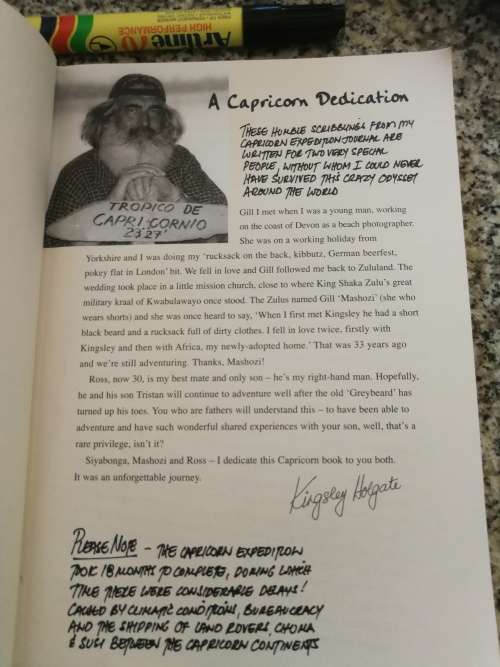 Artline 70
HIGH PERFORMANCE
A Capricorn Dedication
THESE HUMBLE SCRIBBLINGS FROM MY
CAPRICORN EXPEDITION JOURNAL ARE
WRITTEN FOR TWO VERY SPECIAL
PEOPLE, WITHOUT WHOM I COULD NEVER
HAVE SURVIVED THIS CRAZY ODYSSEY
AROUND THE WORLD
TROPICO DE
CAPRICORNIO
23°27'
Gill I met when I was a young man, working
on the coast of Devon as a beach photographer.
She was on a working holiday from
Yorkshire and I was doing my ‘rucksack on the back, kibbutz, German beerfest,
pokey flat in London’ bit. We fell in love and Gill followed me back to Zululand. The
wedding took place in a little mission church, close to where King Shaka Zulu’s great
military kraal of Kwabulawayo once stood. The Zulus named Gill ‘Mashozi’ (she who
wears shorts) and she was once heard to say, ‘When I first met Kingsley he had a short
black beard and a rucksack full of dirty clothes. I fell in love twice, firstly with
Kingsley and then with Africa, my newly-adopted home.’ That was 33 years ago
and we’re still adventuring. Thanks, Mashozi!
Ross, now 30, is my best mate and only son – he’s my right-hand man. Hopefully,
he and his son Tristan will continue to adventure well after the old ‘Greybeard’ has
turned up his toes. You who are fathers will understand this – to have been able to
adventure and have such wonderful shared experiences with your son, well, that’s a
rare privilege, isn’t it?
Siyabonga, Mashozi and Ross – I dedicate this Capricorn book to you both.
It was an unforgettable journey.
Kingsley Holgate
PLEASE NOTE – THE CAPRICORN EXPEDITION
TOOK 18 MONTHS TO COMPLETE, DURING WHICH
TIME THERE WERE CONSIDERABLE DELAYS!
CAUSED BY CLIMATIC CONDITIONS, BUREAUCRACY
AND THE SHIPPING OF LAND ROVERS, CHOMA
& SUSI BETWEEN THE CAPRICORN CONTINENTS